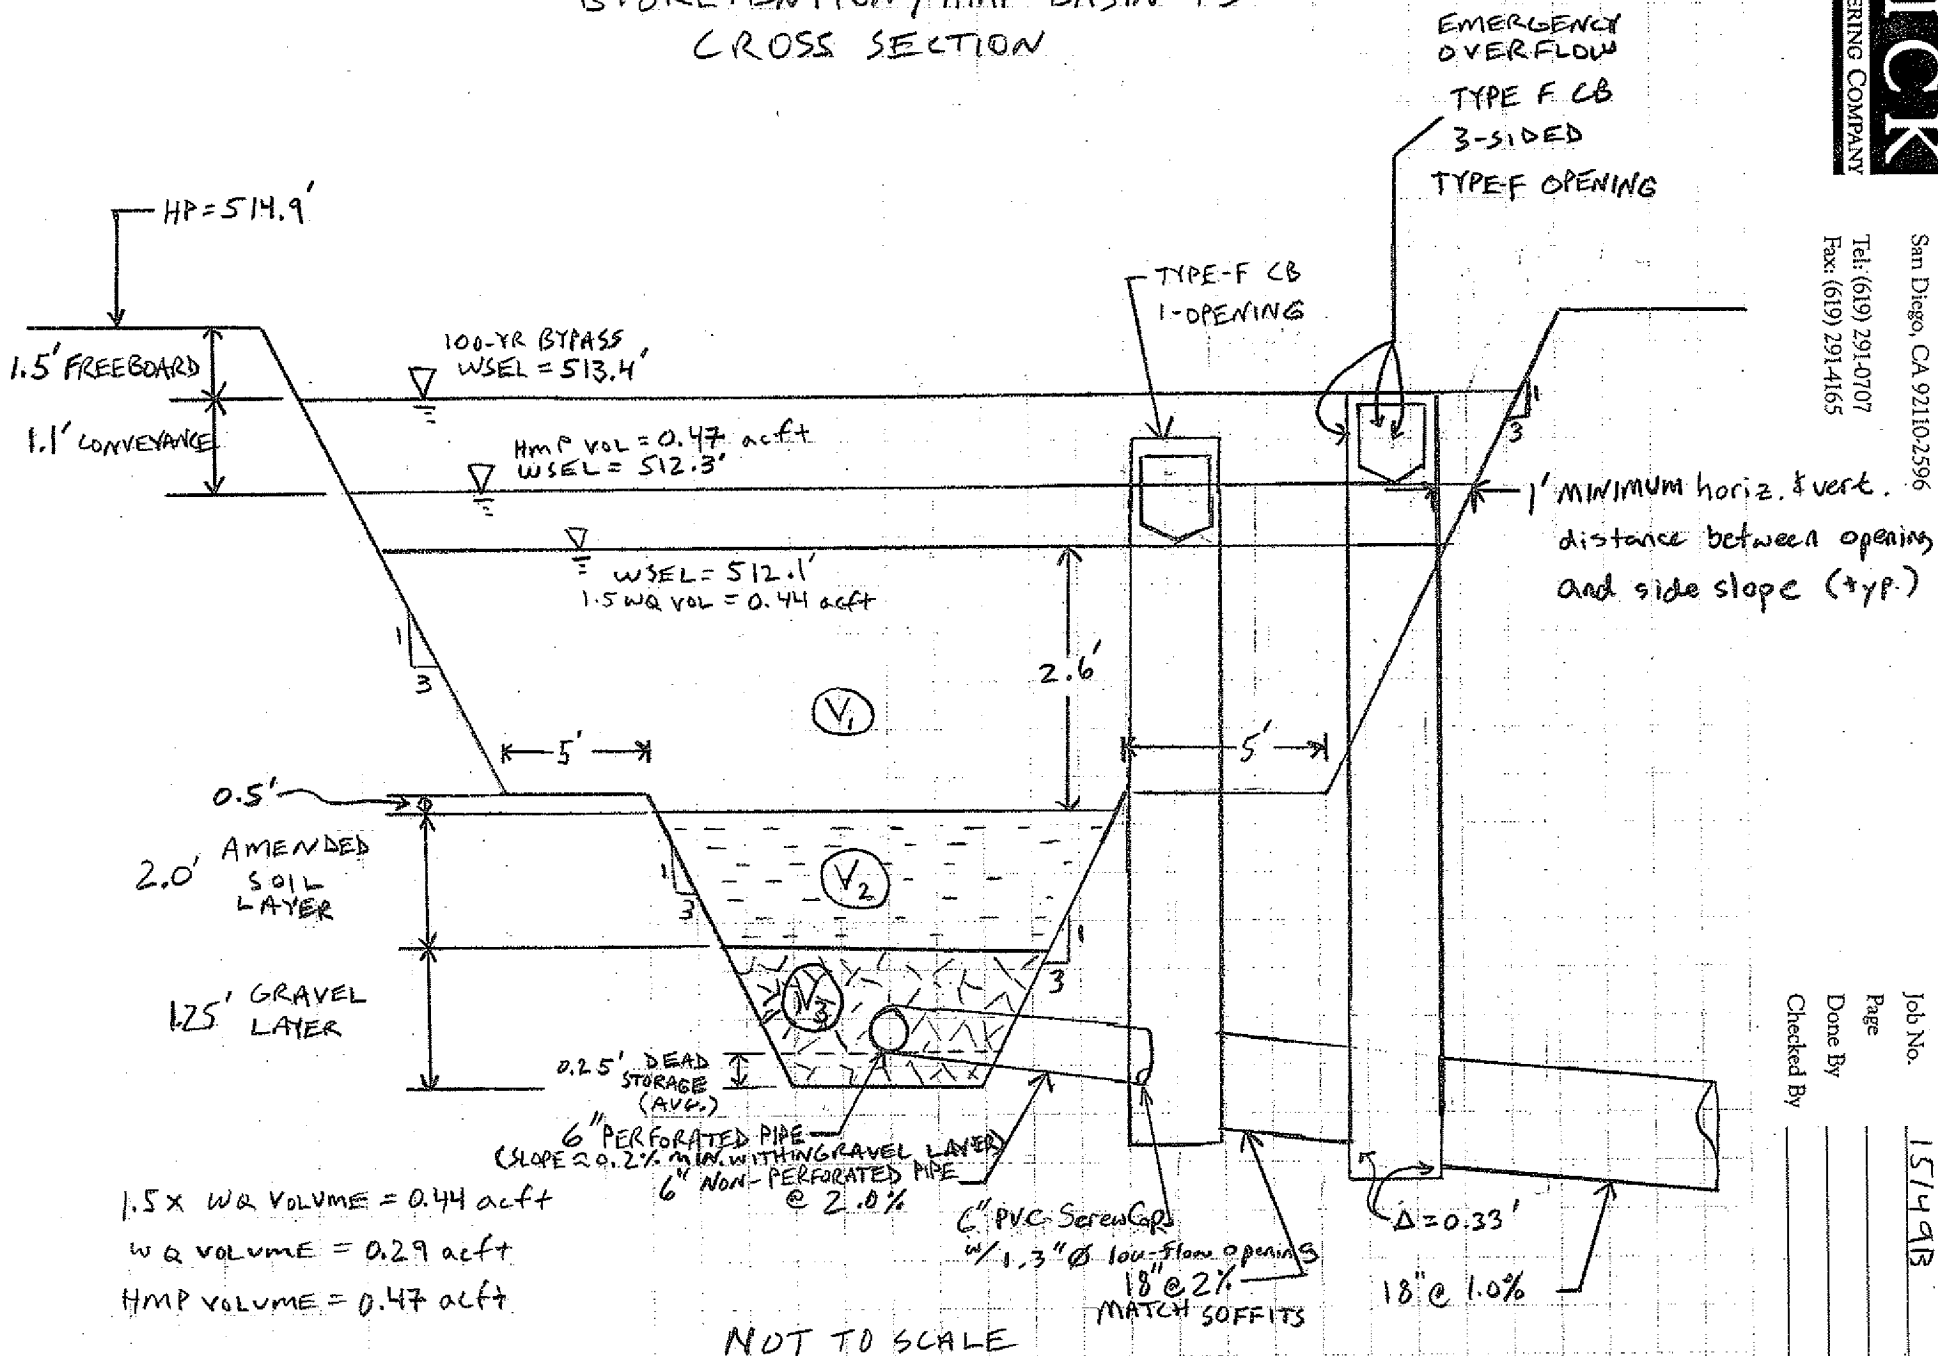 CROSS SECTION
EMERGENCY
OVERFLOW
TYPE F CB
3-SIDED
TYPE-F OPENING
HP=514.9'
TYPE-F CB
1-OPENING
100-YR BYPASS
WSEL = 513.4'
1.5' FREEBOARD
1.1' CONVEYANCE
HMP VOL = 0.47 acft
WSEL = 512.3'
1' MINIMUM horiz. & vert.
distance between opening
and side slope (typ.)
1
3
WSEL = 512.1'
1.5 WQ VOL = 0.44 acft
1
3
2.6'
V1
5'
5'
0.5'
2.0' AMENDED
SOIL
LAYER
V2
1
3
1
3
1.25' GRAVEL
LAYER
V3
0.25' DEAD
STORAGE
(AVG.)
6" PERFORATED PIPE
(SLOPE ≈ 0.2% MIN. WITHIN GRAVEL LAYER)
6" NON-PERFORATED PIPE
@ 2.0%
6" PVC Screw Cap
w/ 1.3" Ø low-flow opening
18" @ 2%
MATCH SOFFITS
Δ = 0.33'
18" @ 1.0%
1.5 x WQ VOLUME = 0.44 acft
WQ VOLUME = 0.29 acft
HMP VOLUME = 0.47 acft
NOT TO SCALE
ICK
ERING COMPANY
San Diego, CA 92110-2596
Tel: (619) 291-0707
Fax: (619) 291-4165
Job No. 15149B
Page
Done By
Checked By